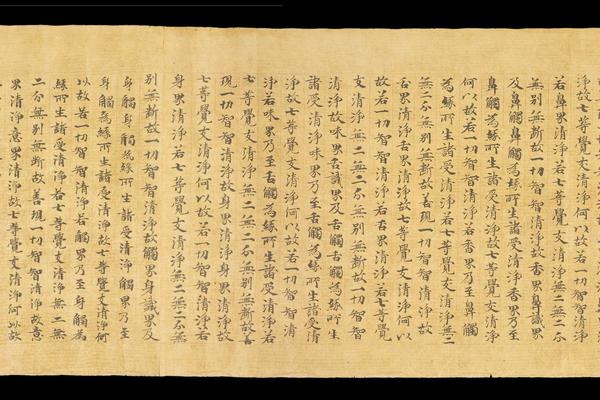 淨故七等覺支清淨何以故若一切智智清淨
若鼻界清淨若七等覺支清淨無二無二分
無別無斷故一切智智清淨故香界鼻識界
及鼻觸鼻觸為緣所生諸受清淨香界乃至
鼻觸為緣所生諸受清淨故七等覺支清淨
何以故若一切智智清淨若香界乃至鼻觸
為緣所生諸受清淨若七等覺支清淨無二
無二分無別無斷故善現一切智智清淨故
舌界清淨舌界清淨故七等覺支清淨何以
故若一切智智清淨若舌界清淨若七等覺
支清淨無二無二分無別無斷故一切智智
清淨故味界舌識界及舌觸舌觸為緣所生
諸受清淨味界乃至舌觸為緣所生諸受清
淨故七等覺支清淨何以故若一切智智清
淨若味界乃至舌觸為緣所生諸受清淨若
七等覺支清淨無二無二分無別無斷故善
現一切智智清淨故身界清淨身界清淨故
七等覺支清淨何以故若一切智智清淨若
身界清淨若七等覺支清淨無二無二分無
別無斷故一切智智清淨故觸界身識界及
身觸身觸為緣所生諸受清淨觸界乃至
身觸為緣所生諸受清淨故七等覺支清淨何
以故若一切智智清淨若觸界乃至身觸為
緣所生諸受清淨若七等覺支清淨無二無
二分無別無斷故善現一切智智清淨故意
界清淨意界清淨故七等覺支清淨何以故